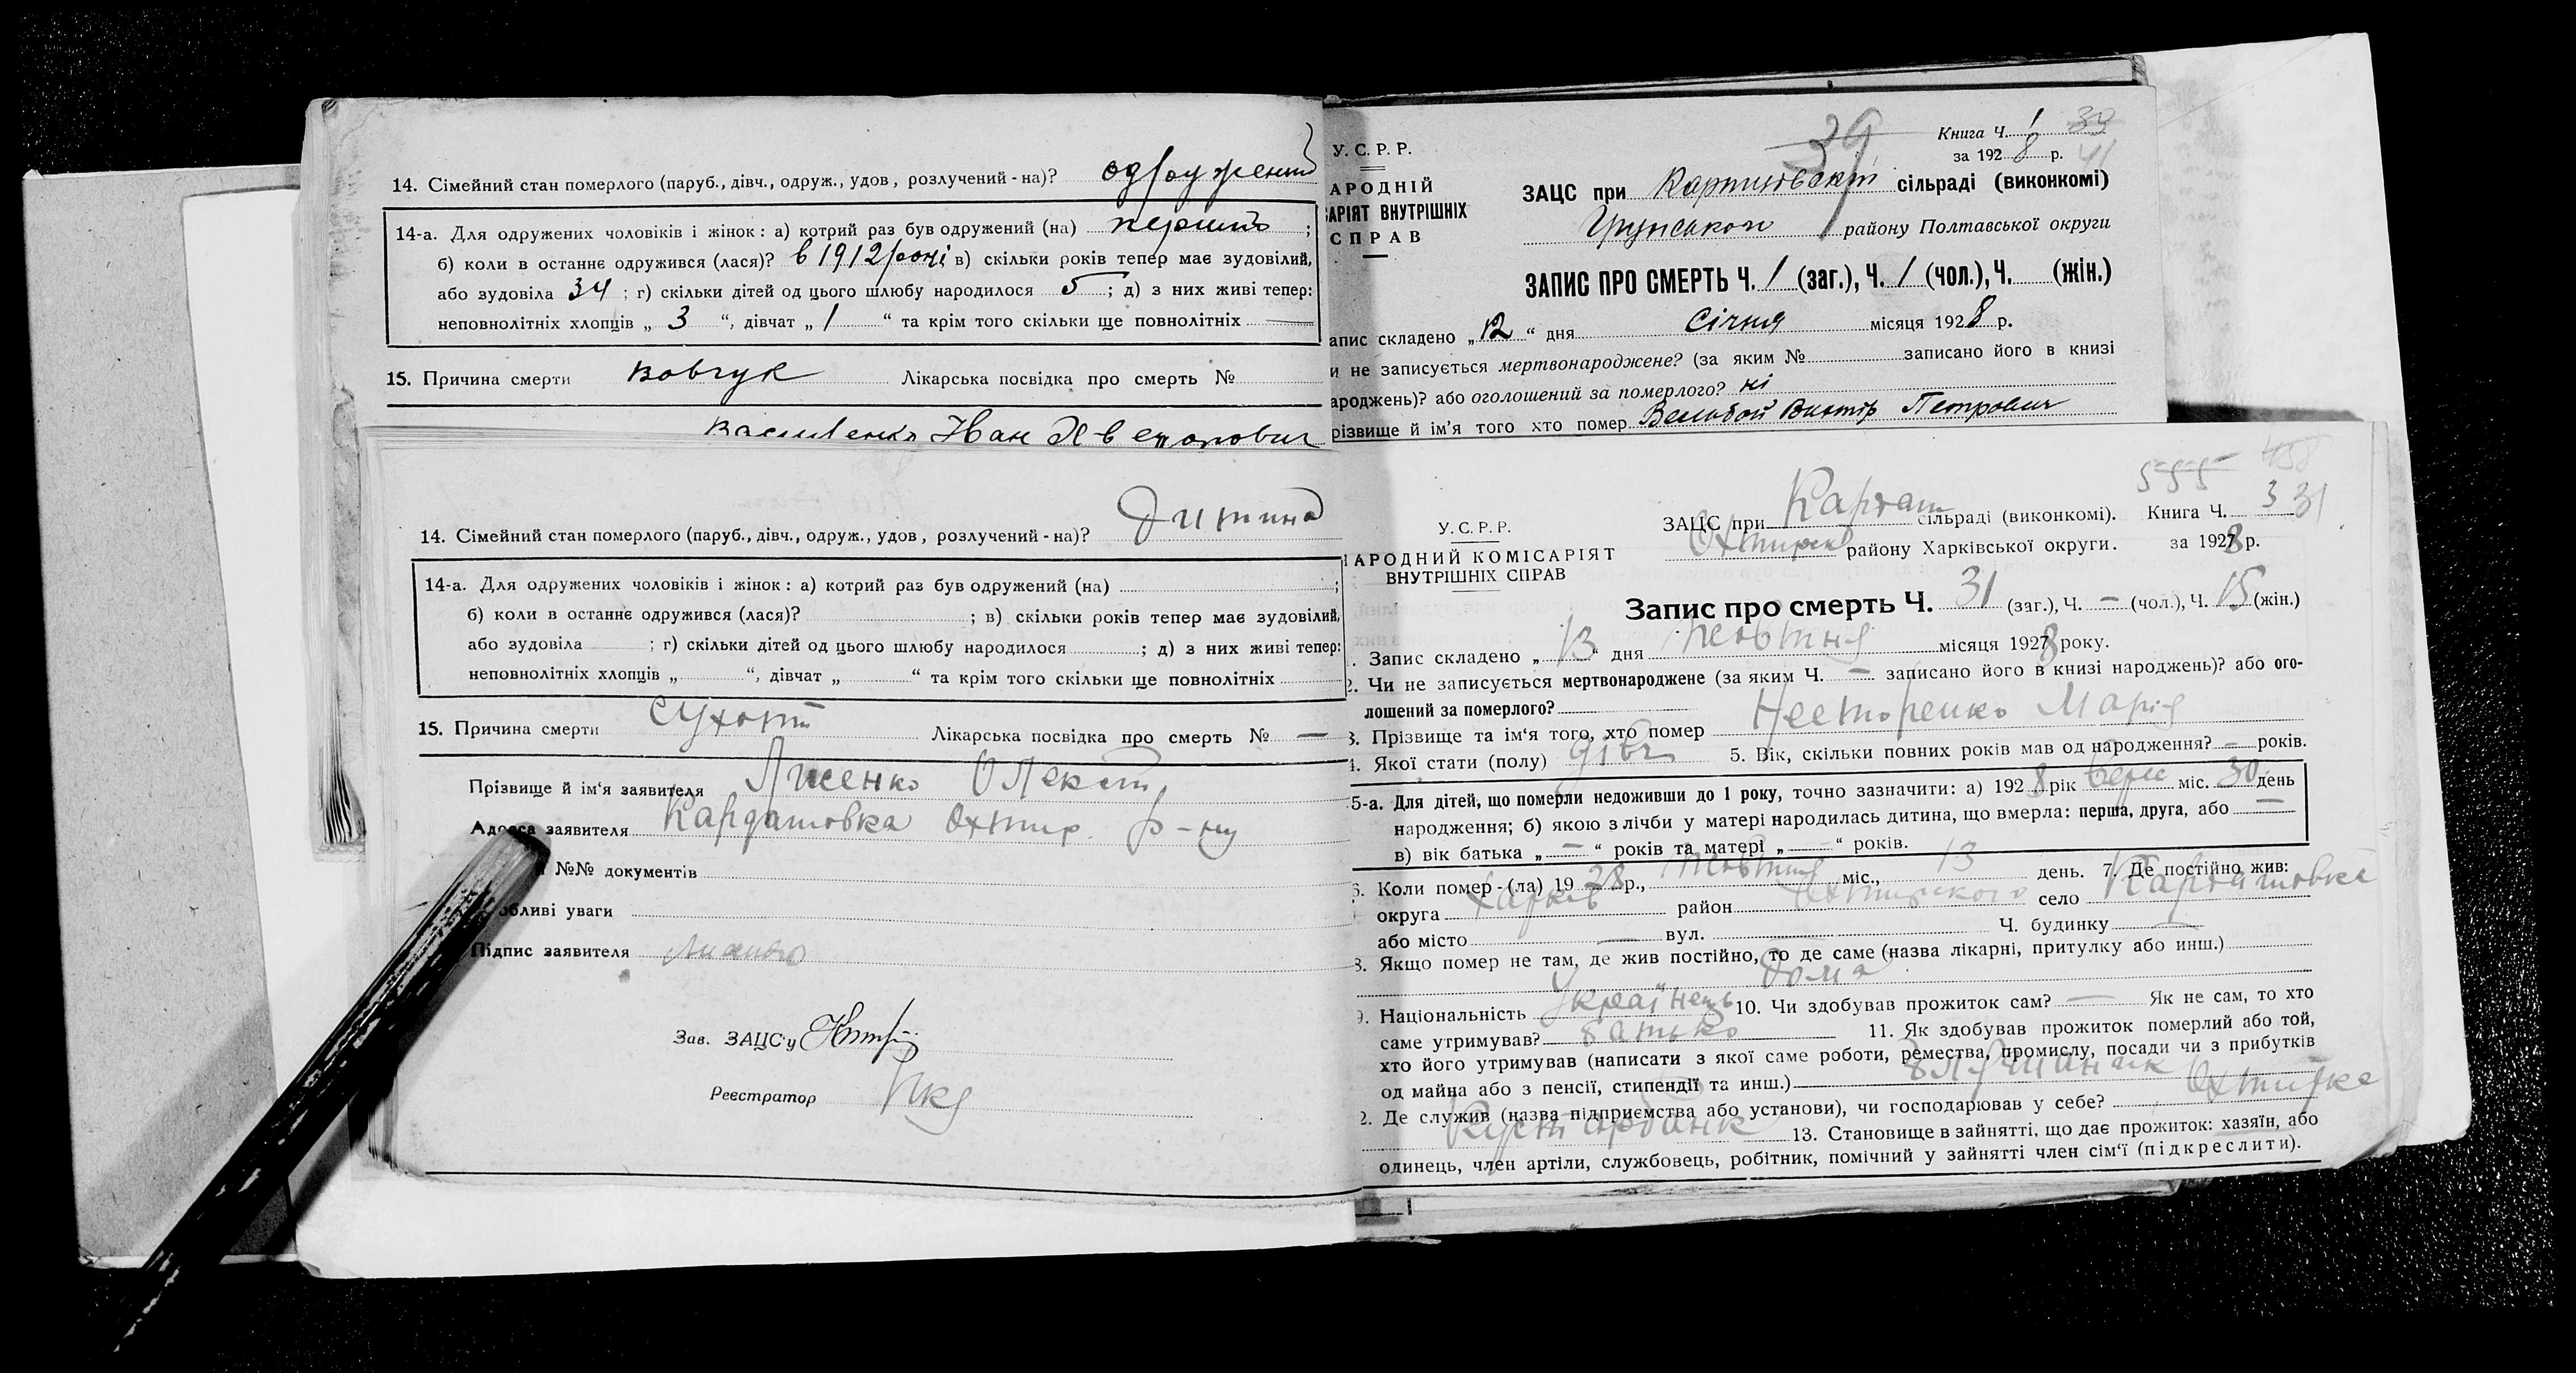 14. Сімейний стан померлого (паруб., дівч., одруж., удов, розлучений - на)? одружений
14-а. Для одружених чоловіків і жінок: а) котрий раз був одружений (на) перший;
б) коли в останнє одружився (лася)? в 1912 році в) скільки років тепер має зудовілий,
або зудовіла 34; г) скільки дітей од цього шлюбу народилося 5; д) з них живі тепер:
неповнолітніх хлопців „ 3 “, дівчат „ 1 “ та крім того скільки ще повнолітніх —
15. Причина смерти вовчук Лікарська посвідка про смерть №
Василенко Іван
14. Сімейний стан померлого (паруб., дівч., одруж., удов, розлучений - на)? Дитина
14-а. Для одружених чоловіків і жінок: а) котрий раз був одружений (на) ;
б) коли в останнє одружився (лася)? ; в) скільки років тепер має зудовілий,
або зудовіла ; г) скільки дітей од цього шлюбу народилося ; д) з них живі тепер:
неповнолітніх хлопців „ “, дівчат „ “ та крім того скільки ще повнолітніх
15. Причина смерти сухоти Лікарська посвідка про смерть № —
Прізвище й ім‘я заявителя
Адреса заявителя Кардашовка Охтир. р-ну
№№ документів
бливі уваги
Підпис заявителя
Зав. ЗАЦС‘у
Реєстратор
39
Книга Ч. 1 39
за 1928 р. 41
У. С. Р. Р.
АРОДНІЙ
АРІЯТ ВНУТРІШНІХ
СПРАВ
ЗАЦС при сільраді (виконкомі)
Грунського району Полтавської округи
ЗАПИС ПРО СМЕРТЬ Ч. 1 (заг.), Ч. 1 (чол.), Ч. (жін.)
апис складено „ 12 “ дня Січня місяця 1928 р.
и не записується мертвонароджене? (за яким № записано його в книзі
ароджень)? або оголошений за померлого? ні
різвище й ім‘я того хто помер Петрович
555 458
У. С. Р. Р.
НАРОДНИЙ КОМІСАРІЯТ
ВНУТРІШНІХ СПРАВ
ЗАЦС при Кардаш сільраді (виконкомі). Книга Ч. 3 31
Охтирськ району Харківської округи. за 1928 р.
Запис про смерть Ч. 31 (заг.), Ч. — (чол.), Ч. 15 (жін.)
. Запис складено „ 13 “ дня Жовтня місяця 1928 року.
2. Чи не записується мертвонароджене (за яким Ч. — записано його в книзі народжень)? або ого-
лошений за померлого?
3. Прізвище та ім‘я того, хто помер Несторенко Марія
4. Якої стати (полу) дівч 5. Вік, скільки повних років мав од народження? — років.
5-а. Для дітей, що померли недоживши до 1 року, точно зазначити: а) 1928 рік Верес міс. 30 день
народження; б) якою з лічби у матері народилась дитина, що вмерла: перша, друга, або —
в) вік батька „ — “ років та матері „ — “ років.
6. Коли помер - (ла) 1928 р., Жовтня міс., 13 день. 7. Де постійно жив:
округа Харків район Охтирського село Кардашовка
або місто — вул. Ч. будинку —
8. Якщо помер не там, де жив постійно, то де саме (назва лікарні, притулку або инш.)
дома
9. Національність Українець 10. Чи здобував прожиток сам? — Як не сам, то хто
саме утримував? батько 11. Як здобував прожиток померлий або той,
хто його утримував (написати з якої саме роботи, ремества, промислу, посади чи з прибутків
од майна або з пенсії, стипендії та инш.)
2. Де служив (назва підприємства або установи), чи господарював у себе? Охтирка
13. Становище в зайнятті, що дає прожиток: хазяїн, або
одинець, член артіли, службовець, робітник, помічний у зайнятті член сім‘ї (підкреслити).